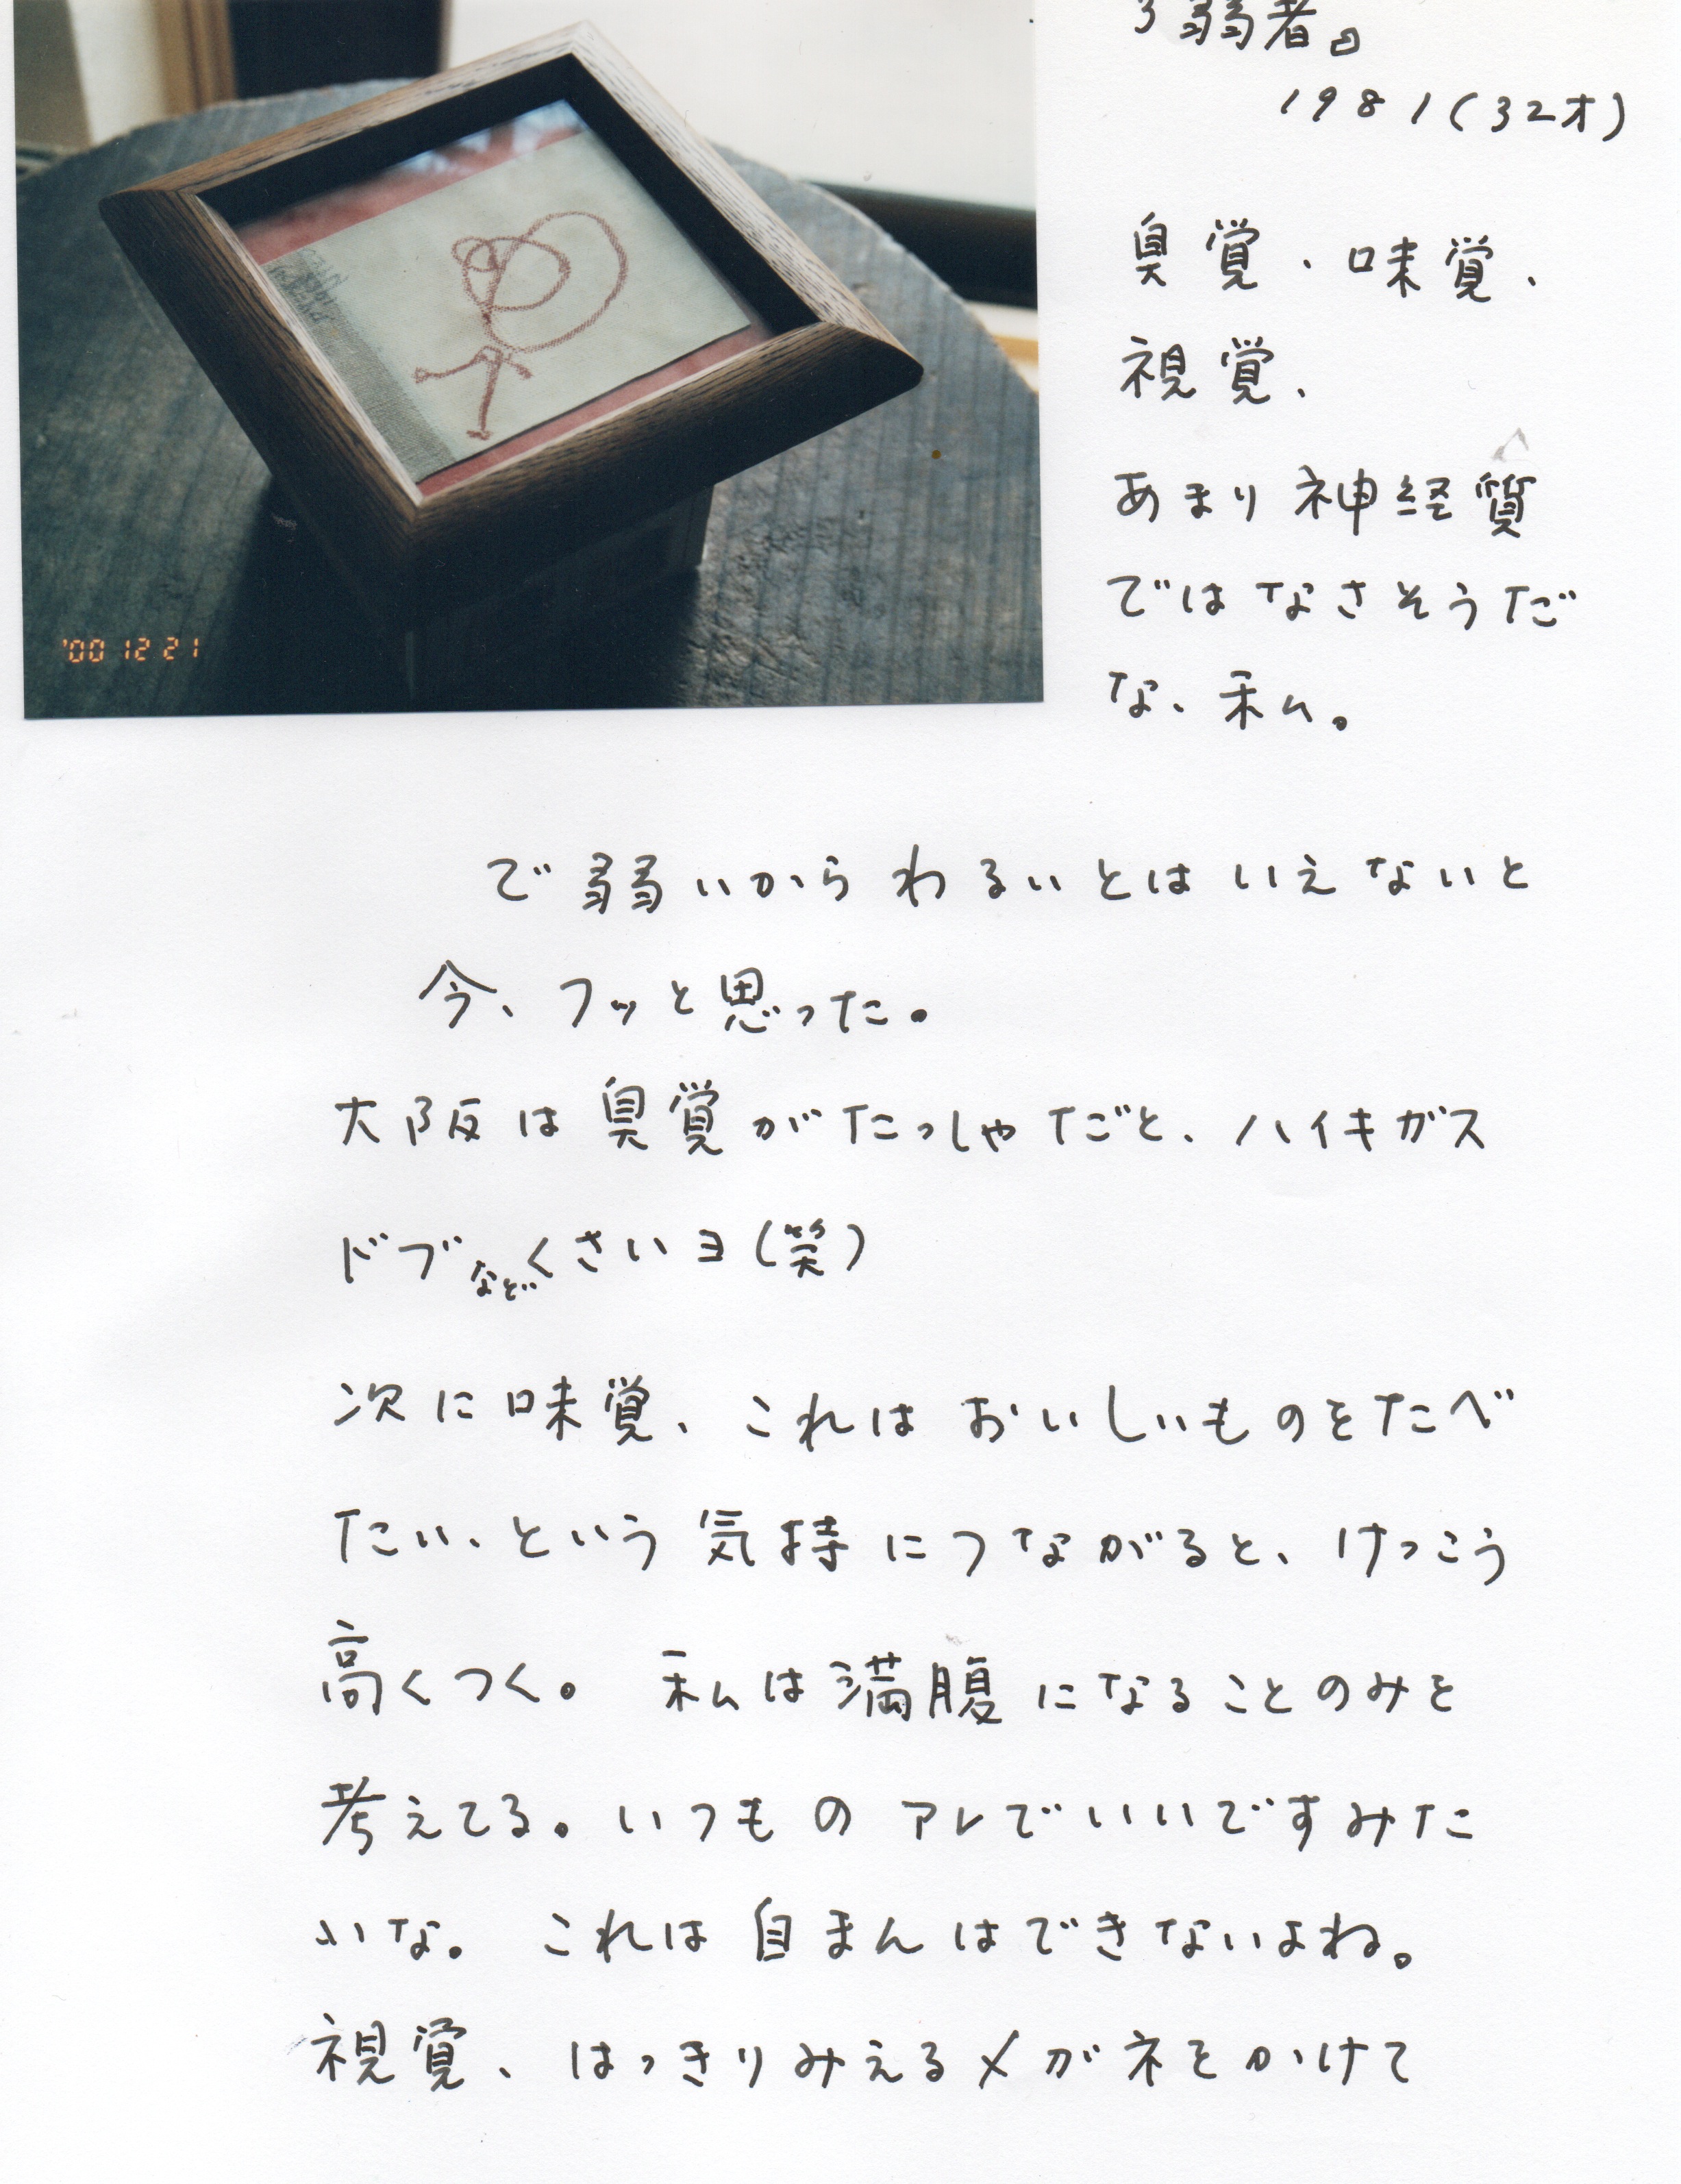 弱者。
1981(32才)
臭覚、味覚、
視覚、
あまり神経質
ではなさそうだ
な、私。
'00 12 21
で弱いからわるいとはいえないと
今、フッと思った。
大阪は臭覚がたっしゃだと、ハイキガス
ドブなどくさいヨ(笑)
次に味覚、これはおいしいものをたべ
たい、という気持につながると、けっこう
高くつく。 私は満腹になることのみを
考えてる。いつものアレでいいですみた
いな。 これは自まんはできないよね。
視覚、はっきりみえるメガネをかけて